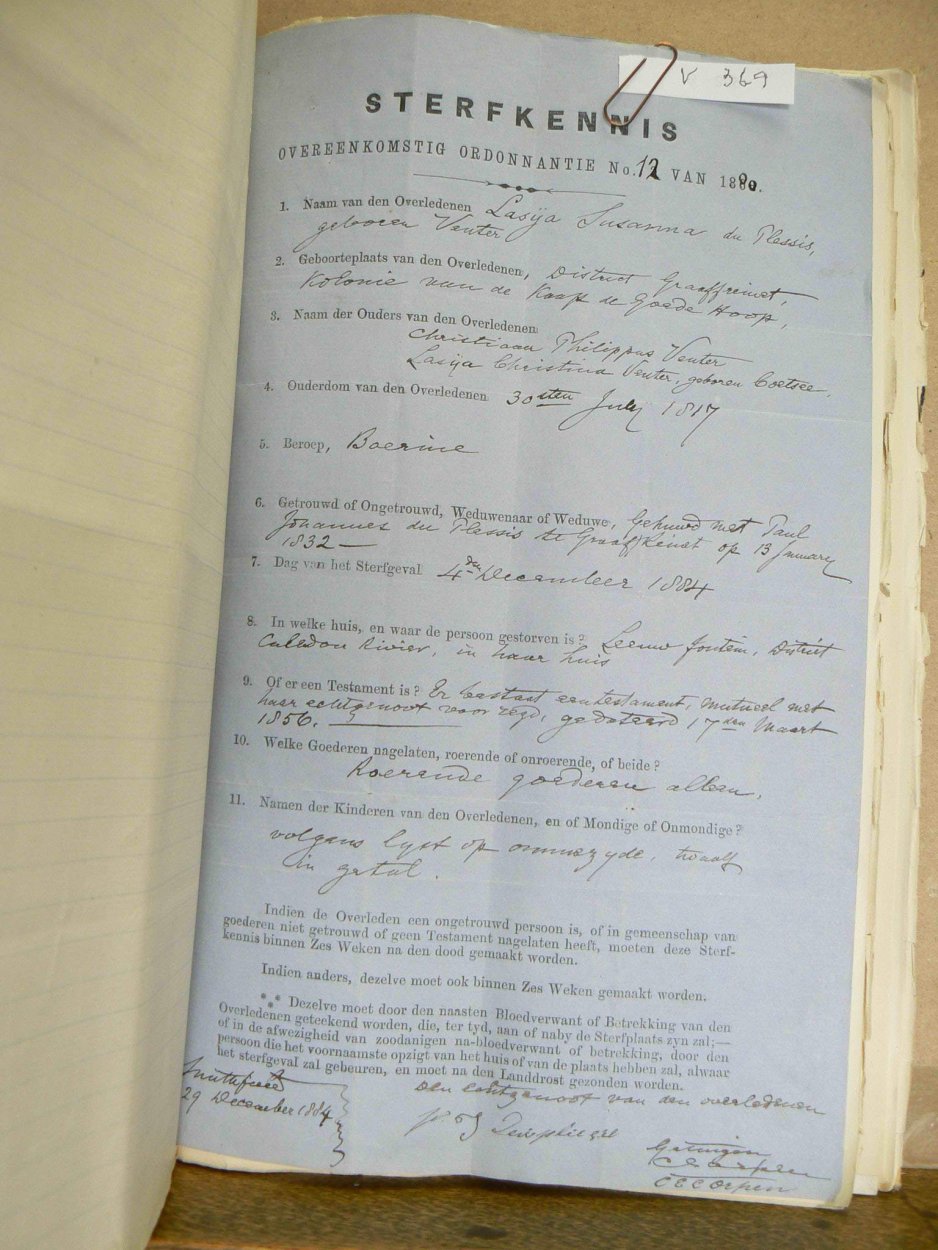 V 369
STERFKENNIS
OVEREENKOMSTIG ORDONNANTIE No. 12 VAN 1880.
1. Naam van den Overledenen Lasija Susanna du Plessis,
geboren Venter
2. Geboorteplaats van den Overledenen, District Graaffreinet,
Kolonie van de Kaap de Goede Hoop,
3. Naam der Ouders van den Overledenen
Christiaan Philippus Venter
Lasija Christina Venter, geboren Coetsee.
4. Ouderdom van den Overledenen 30sten July 1817
5. Beroep, Boerine
6. Getrouwd of Ongetrouwd, Weduwenaar of Weduwe, Gehuwd met Paul
Johannes du Plessis te Graaffreinet op 13 January
1832 —
7. Dag van het Sterfgeval 4den December 1884
8. In welke huis, en waar de persoon gestorven is? Leeuw fontein, District
Caledon Rivier, in haar huis
9. Of er een Testament is? Er bestaat een testament, mutueel met
haar echtgenoot voorzegd, gedateerd 17den Maart
1856.
10. Welke Goederen nagelaten, roerende of onroerende, of beide?
Roerende goederen alleen.
11. Namen der Kinderen van den Overledenen, en of Mondige of Onmondige?
volgens lyst op ommezyde, twaalf
in getal.
Indien de Overleden een ongetrouwd persoon is, of in gemeenschap van
goederen niet getrouwd of geen Testament nagelaten heeft, moeten deze Sterf-
kennis binnen Zes Weken na den dood gemaakt worden.
Indien anders, dezelve moet ook binnen Zes Weken gemaakt worden.
⁂ Dezelve moet door den naasten Bloedverwant of Betrekking van den
Overledenen geteekend worden, die, ter tyd, aan of naby de Sterfplaats zyn zal;—
of in de afwezigheid van zoodanigen na-bloedverwant of betrekking, door den
persoon die het voornaamste opzigt van het huis of van de plaats hebben zal, alwaar
het sterfgeval zal gebeuren, en moet na den Landdrost gezonden worden.
Smithfield
29 December 1884
Den echtgenoot van den overledenen
Getuigen
C E Orpen